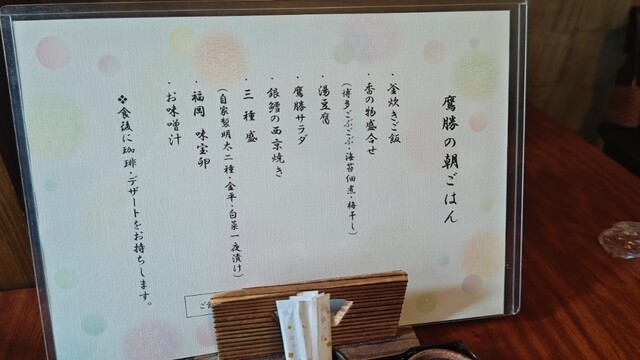 鷹勝の朝ごはん
・釜炊きご飯
・香の物盛合せ
(博多ごぶごぶ・海苔佃煮・梅干し)
・湯豆腐
・鷹勝サラダ
・銀鱈の西京焼き
・三種盛
(自家製明太二種・金平・白菜一夜漬け)
・福岡 味宝卵
・お味噌汁
❖食後に珈琲・デザートをお持ちします。
ご飯